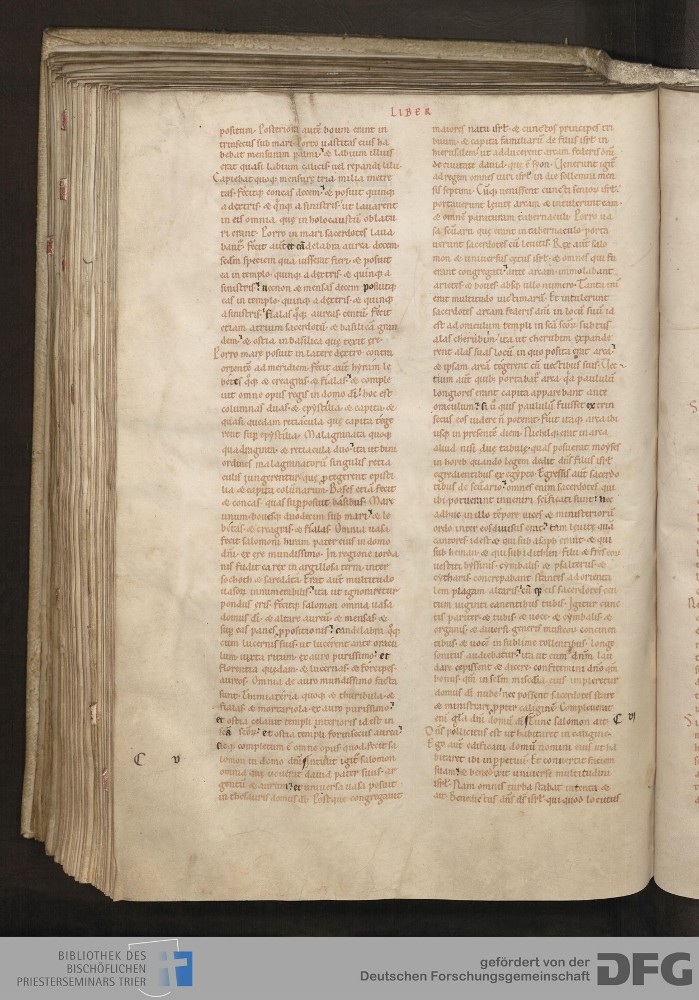 LIBER
positum. Posteriora autē boum erant in
trinsecus sub mari. Porro vastitas eius ha
bebat mensuram palmi. & labium illius
erat quasi labium calicis vel repandi lilii.
Capiebatq; mensurę tria milia metre
tas. Fecitq; concas decem. & posuit quinq;
a dextris. & q̇nq; a sinistris. ut lavarent
in eis omnia quę in holocaustū oblatu
ri erant. Porro in mari sacerdotes lava
bant. Fecit aut̄ et cādelabra aurea decem.
scđm speciem qua iusserat fieri. & posuit
ea in templo. quinq; a dextris. & quinq; a
sinistris. necnon & mensas decem. posuitq;
eas in templo. quinq; a dextris. & quinq;
a sinistris. Fialas q̇q; aureas centū. Fecit
etiam atrium sacerdotū. & basilicā gran
dem. & ostia in basilica quę texit ere.
Porro mare posuit in latere dextro. contra
orientē ad meridiem. Fecit aut̄ hyram le
betes q̇q; & creagras & fialas. & comple
vit omne opus regis in domo dī. hoc est
columnas duas. & epystilia. & capita. &
quasi quedam retiacula. quę capita tege
rent sup epystilia. Malagranata quoq;
quadraginta. & retiacula duo. ita ut bini
ordines malagranatorū singulis retia
culis iungerentur. quę ꝓtegerent episti
lia & capita colūnarum. Bases etiā fecit
& concas. quas supposuit basibus. Mare
unum. bovesq; duodecim sub mari. & le
betas. & creagras. & fialas. Omnia vasa
fecit salomoni hiram pater eius in domo
dñi. ex ere mundissimo. In regione iorda
nis fudit ea rex in argillosa terra. inter
sochoth & saredata. Erat aut̄ multitudo
vasorū innumerabilis. ita ut ignoraretur
pondus eris. Fecitq; salomon omnia vasa
domus dī. & altare aureū. & mensas. &
sup eas panes ꝓpositionis. candelabra q̇q;
cum lucernis suis. ut lucerent ante oracu
lum iuxta ritum. ex auro purissimo. et
florentia quędam. & lucernas. & forcipes
aureos. Omnia de auro mundissimo facta
sunt. Timiateria quoq; & thuribula. &
fialas. & mortariola. ex auro purissimo.
et ostia celavit templi interioris id est in
scā scōꝝ. et ostia templi forinsecus aurea.
sicq; completum ē omne opus quod fecit sa
lomon in domo dñi. Intulit igit̄ salomon
omnia quę voverat david pater suus. ar
gentū & aurum. et universa vasa posuit
in thesauris domus dī. Postquę congregavit
C V
maiores natu isrl̄. & cunctos principes tri
buum. & capita familiarū de filiis isrl̄ in
hierusalem. ut adducerent arcam federis dñi
de civitate david. quę ē syon. Venerunt igit̄
ad regem omnes viri isrl̄ in die sollemni men
sis septimi. Cūq; venissent cuncti seniorū isrl̄.
portaverunt levitę arcam. & intulerunt eam
& omnē paraturam tabernaculi. Porro va
sa scūarii quę erant in tabernaculo. porta
verunt sacerdotes cū levitis. Rex aut̄ salo
mon & universus cetus isrl̄. & omnes qui fu
erant congregati ante arcam. immolabant
arietes & boves absq; ullo numero. Tanta eni
erat multitudo victimarū. Et intulerunt
sacerdotes arcam federis dñi in locū suū. id
est ad oraculum templi in scā scōꝝ. subtus
alas cherubin. ita ut cherubin expande
rent alas suas sup locū in quo posita erat arca.
& ipsam arcā tegerent cū vectibus suis. Vec
tium aut̄ quib; portabat̄ arca. q̇a paululū
longiores erant capita apparebant ante
oraculum. si ū quis paululū fuisset extrin
secus eos videre n̄ poterat. Fuit itaq; arca ibi
usq; in presentē diem. Nichilq; erat in arca
aliud nisi duę tabulę. quas posuerat moyses
in horeb quando legem dedit dñs filiis isrl̄
egredientibus ex egypto. Egressis aut̄ sacerdo
tibus de scūario. omnes enim sacerdotes qui
ibi potuerant inveniri scīficati sunt. nec
adhuc in illo tēpore vices & ministeriorū
ordo inter eos divisus erat. tam levitę quā
cantores. id est & qui sub asaph erant. & qui
sub heman. & qui sub idithun. filii & frēs eoꝝ
vestiti byssinis. cymbalis. & psalteriis. &
cytharis concrepabant. stantes ad orienta
lem plagam altaris. cū q; eis sacerdotes cen
tum viginti canentibus tubis. Igitur cunc
tis pariter. & tubis. & voce. & cymbalis. &
organis. & diversi generis musicoꝝ concinen
tibus. & vocē in sublime tollentibus. longe
sonitus audiebatur. ita ut cum dñm lau
dare cepissent. & dicere. confitemini dño q̄m
bonus. q̄m in sclm misc̄dia eius. impleretur
domus dī nube. nec possent sacerdotes stare
& ministrare ꝓpter caliginē. Compleverat
eni gl̄a dñi domū dī. Tunc salomon ait. C VI
Dñs pollicitus est ut habitaret in caligine.
Ego aut̄ edificavi domū nomini eius. ut ha
bitaret ibi in ppetuū. Et convertit faciem
suam. & benedixit universę multitudini
isrl̄. Nam omnis turba stabat intenta. &
ait. Benedictus dñs dš isrl̄. qui quod locutus
BIBLIOTHEK DES
BISCHÖFLICHEN
PRIESTERSEMINARS TRIER
gefördert von der
Deutschen Forschungsgemeinschaft
DFG